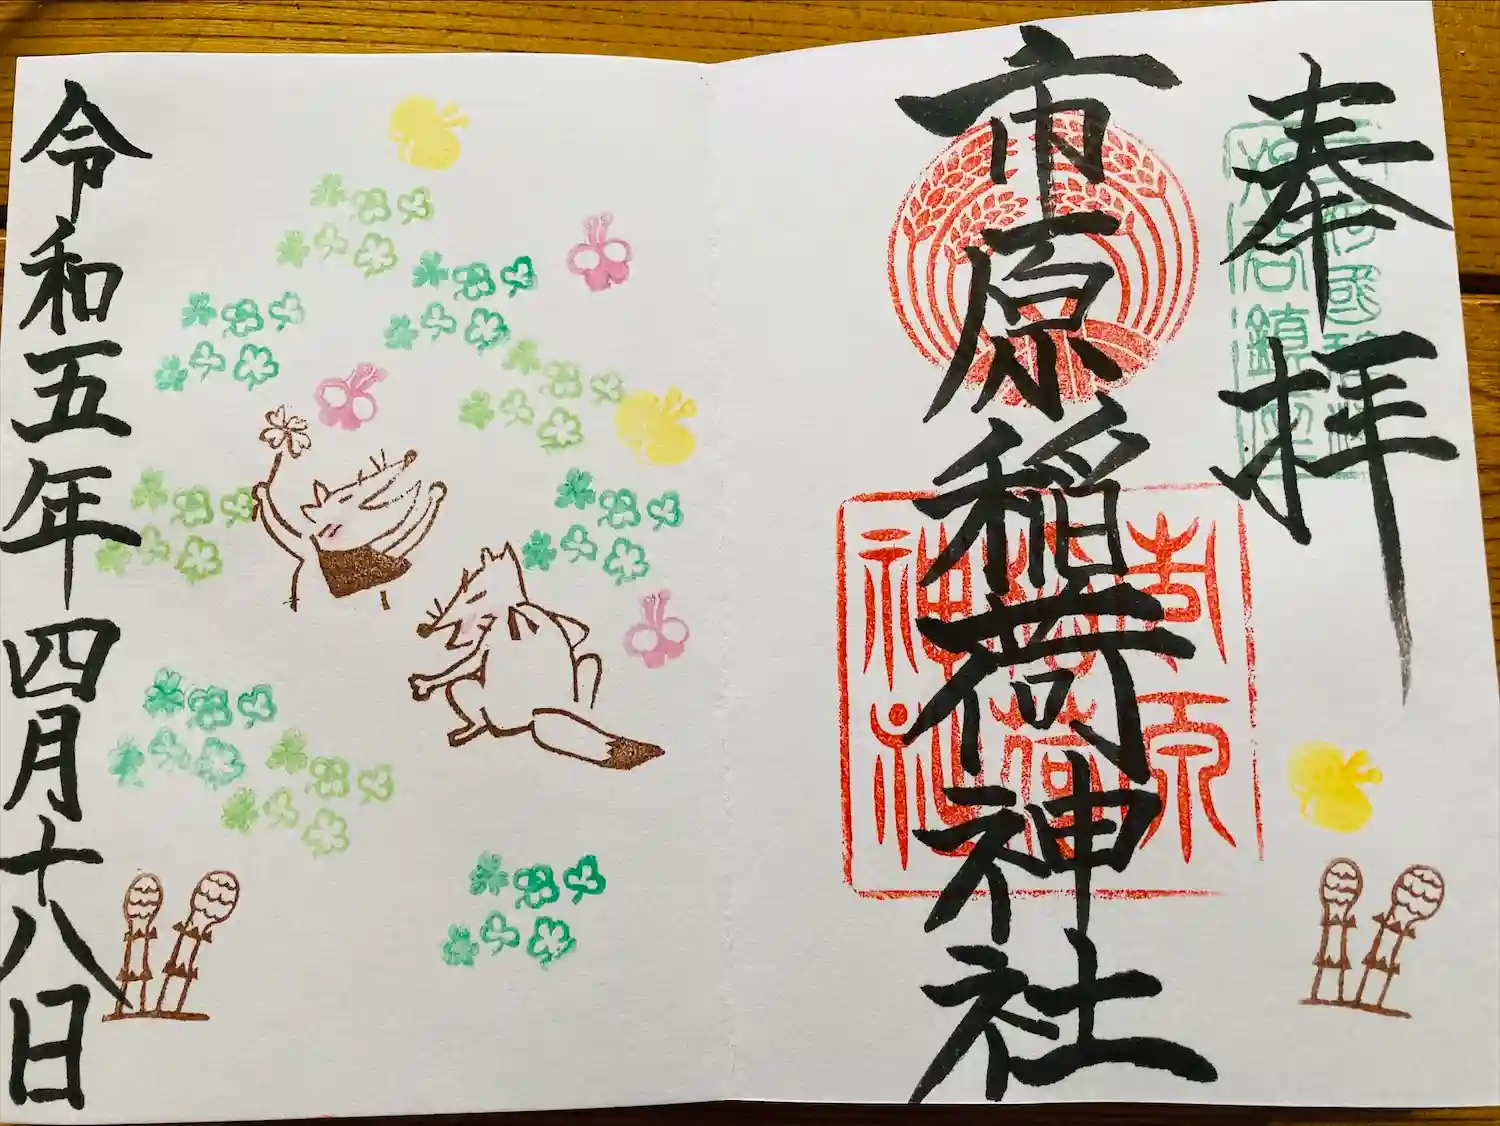 奉拝
市原稲荷神社
市原
稲荷
神社
令和五年四月十八日